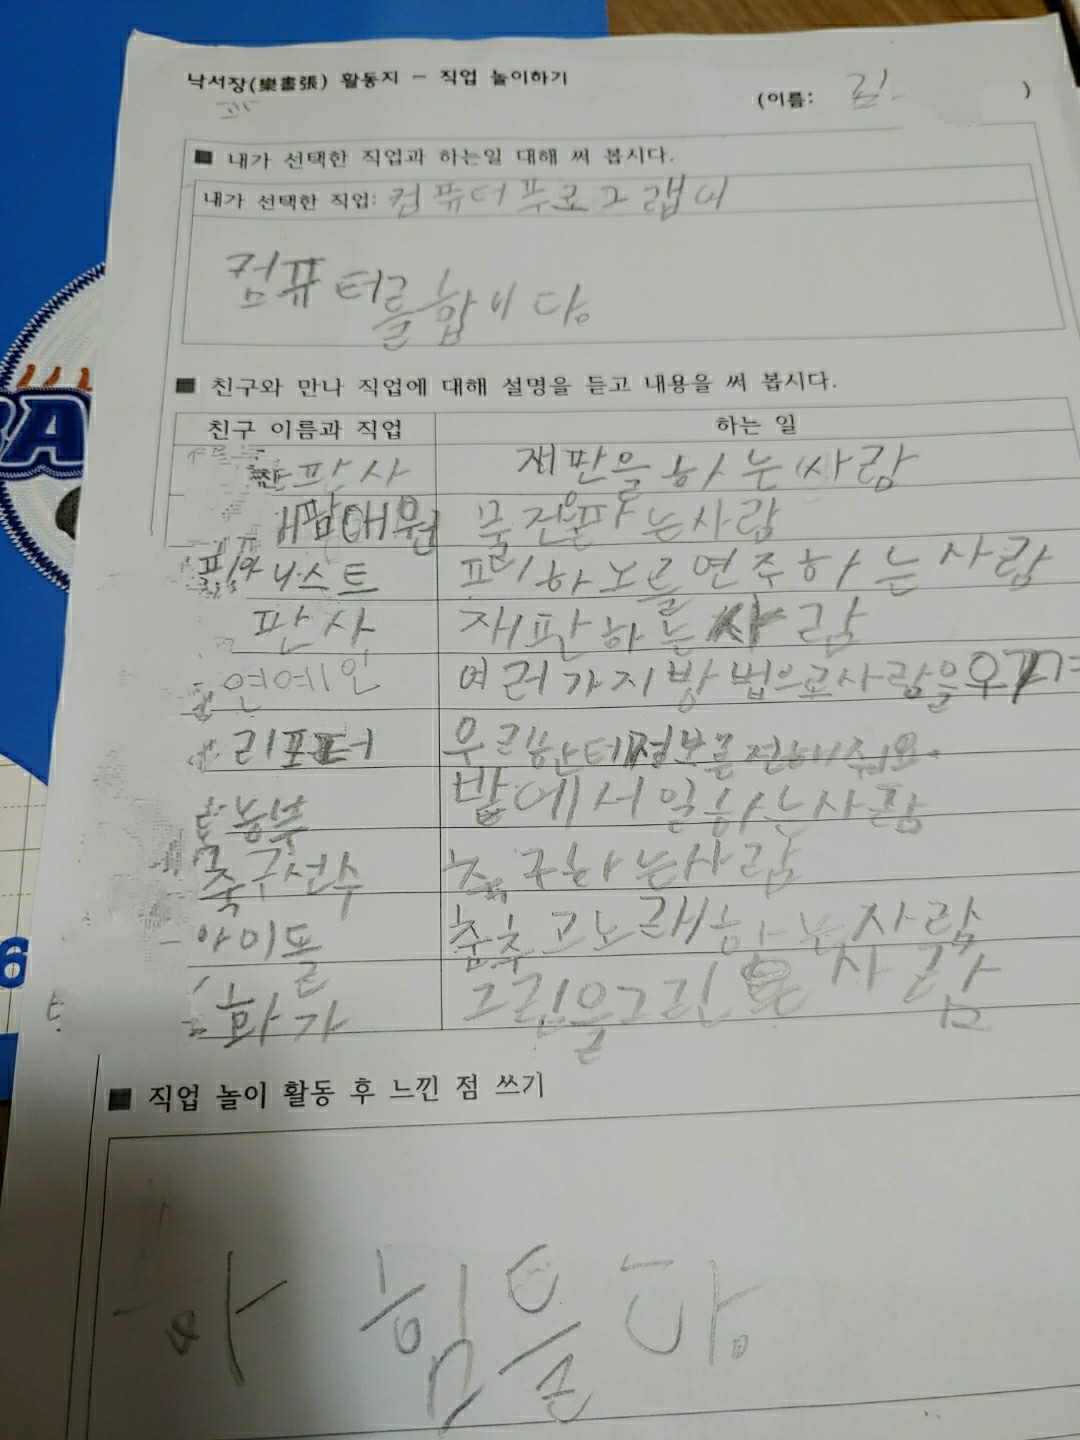 낙서장(樂書張) 활동지 - 직업 놀이하기
(이름: 김 )
■ 내가 선택한 직업과 하는일 대해 써 봅시다.
내가 선택한 직업: 컴퓨터푸로그램어
컴퓨터를합니다.
■ 친구와 만나 직업에 대해 설명을 듣고 내용을 써 봅시다.
친구 이름과 직업 하는 일
판사 재판을 하는 사람
물건을파는사람
피하노를연주하는사람
판사 재판하는사람
연예인 여러가지방법으로사람을
리포터 우리한테정보를전해줘요.
농부 밭에서일하는사람
축구선수 축구하는사람
아이돌 춤추고노래하는사람
화가 그림을그린는사람
■ 직업 놀이 활동 후 느낀 점 쓰기
아 힘들다.
BA
6